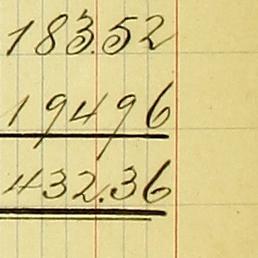 183.52
19496
432.36